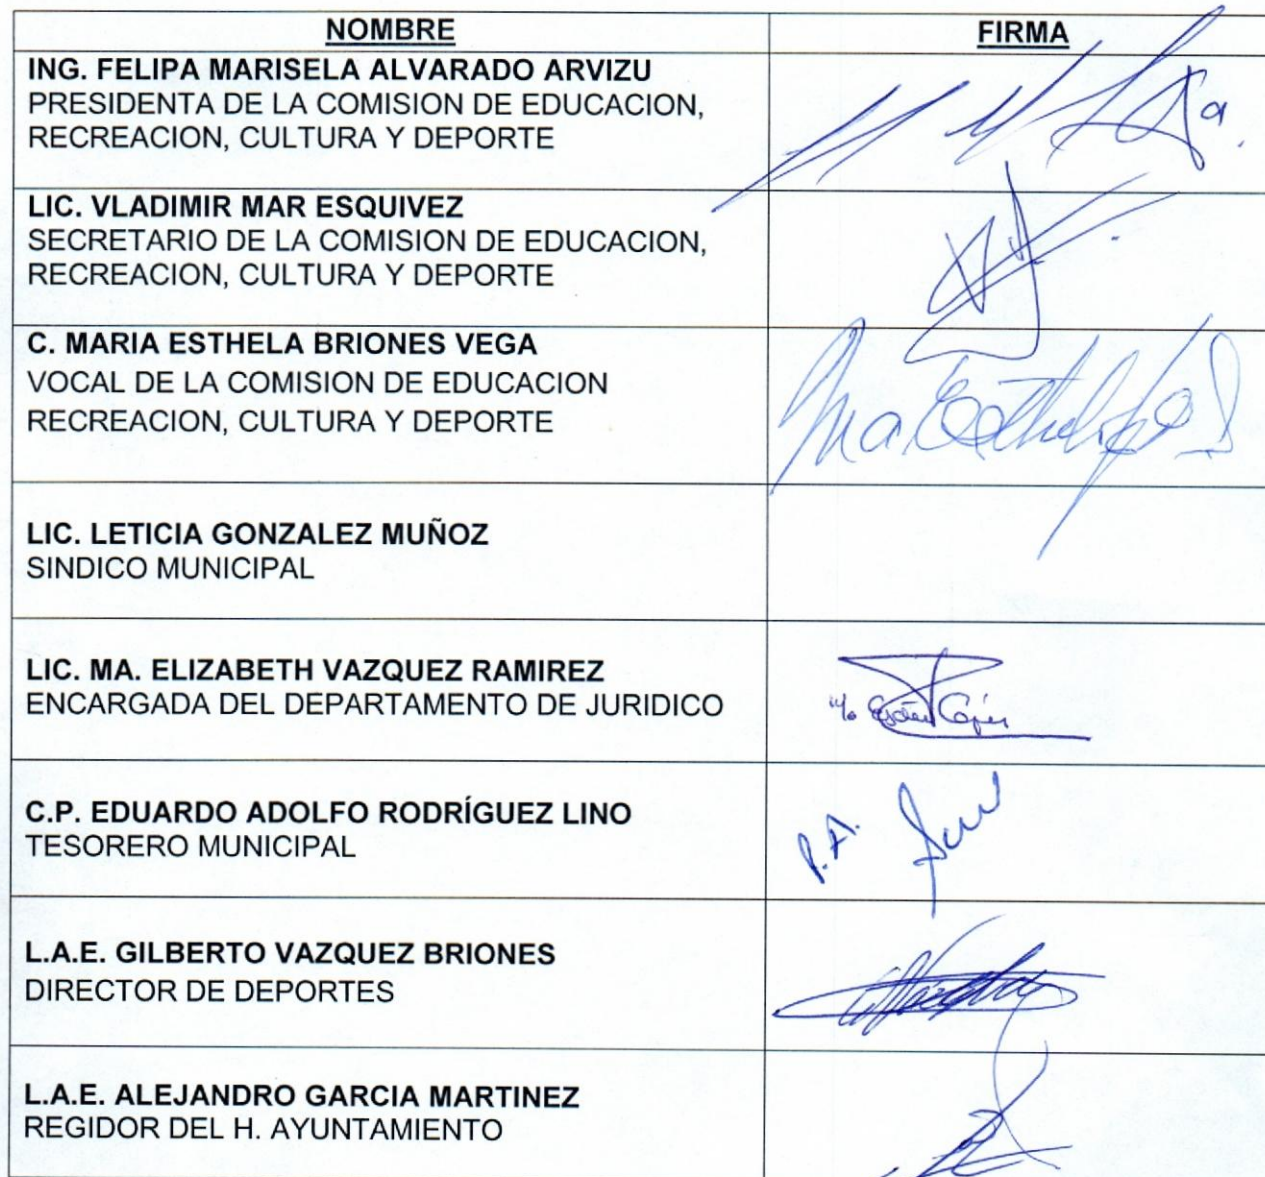 NOMBRE FIRMA
ING. FELIPA MARISELA ALVARADO ARVIZU
PRESIDENTA DE LA COMISION DE EDUCACION,
RECREACION, CULTURA Y DEPORTE
LIC. VLADIMIR MAR ESQUIVEZ
SECRETARIO DE LA COMISION DE EDUCACION,
RECREACION, CULTURA Y DEPORTE
C. MARIA ESTHELA BRIONES VEGA
VOCAL DE LA COMISION DE EDUCACION
RECREACION, CULTURA Y DEPORTE
Ma. Esthela
LIC. LETICIA GONZALEZ MUÑOZ
SINDICO MUNICIPAL
LIC. MA. ELIZABETH VAZQUEZ RAMIREZ
ENCARGADA DEL DEPARTAMENTO DE JURIDICO
C.P. EDUARDO ADOLFO RODRÍGUEZ LINO
TESORERO MUNICIPAL
P.A.
L.A.E. GILBERTO VAZQUEZ BRIONES
DIRECTOR DE DEPORTES
L.A.E. ALEJANDRO GARCIA MARTINEZ
REGIDOR DEL H. AYUNTAMIENTO